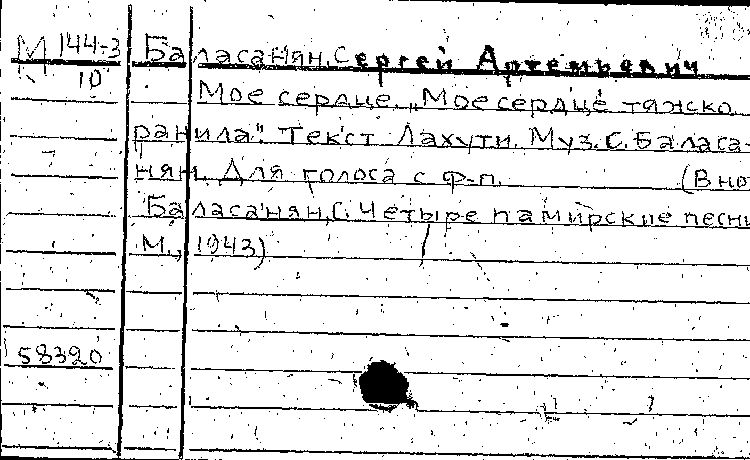 М 144-3 Баласанян, Сергей Артемьевич
10
Мое сердце. „Мое сердце тяжко
ранила". Текст Лахути. Муз. С. Баласа-
нян. Для голоса с ф-п. (В но
Баласанян, С. Четыре памирские песни
М., 1943)
58320